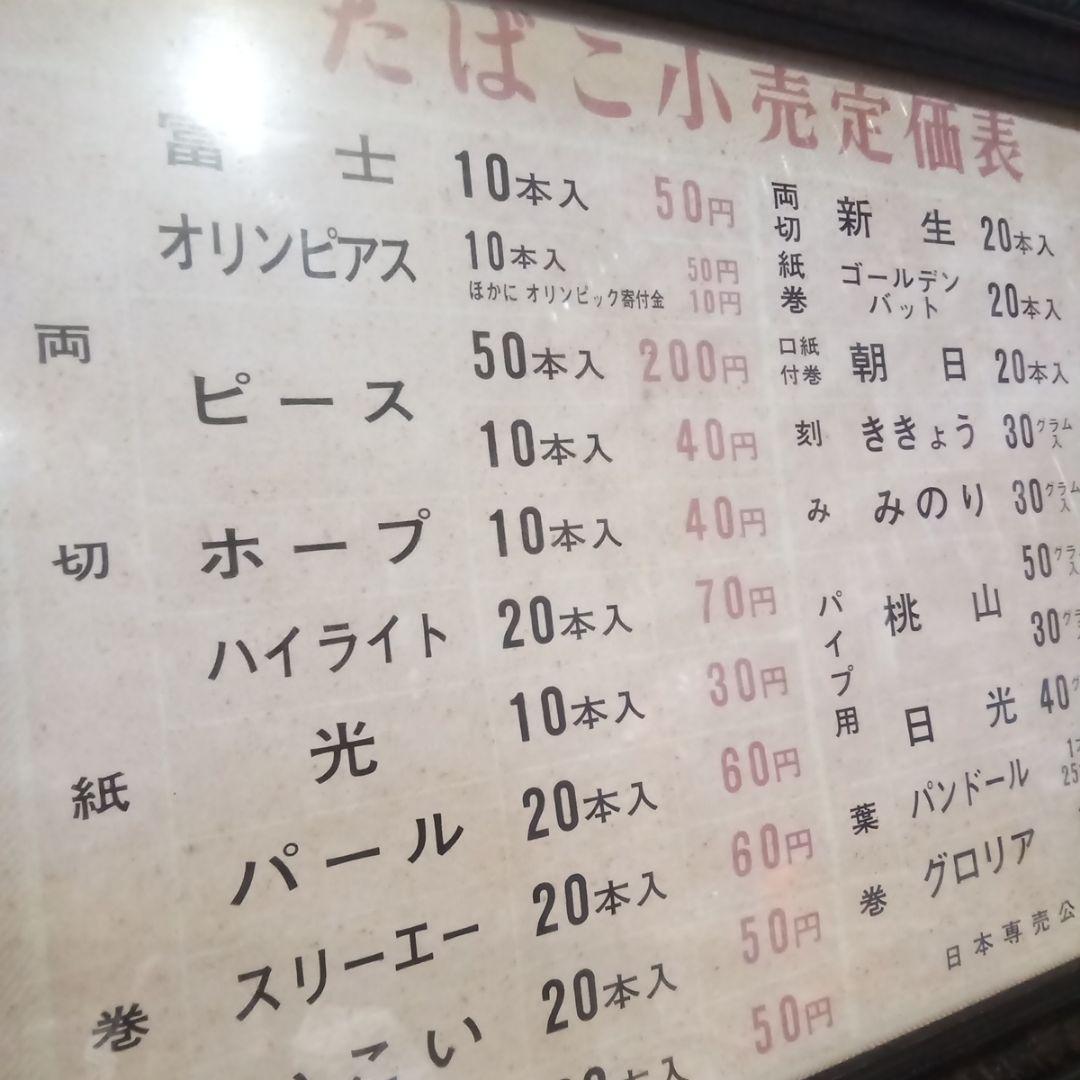 たばこ小売定価表
両切紙巻
富士 10本入 50円
オリンピアス 10本入 50円
ほかに オリンピック寄付金 10円
ピース 50本入 200円
10本入 40円
ホープ 10本入 40円
ハイライト 20本入 70円
光 10本入 30円
パール 20本入 60円
スリーエー 20本入 60円
こい 20本入 50円
50円
両切紙巻
新生 20本入
ゴールデンバット 20本入
口付紙巻 朝日 20本入
刻み
ききょう 30グラム入
みのり 30グラム入
パイプ用
桃山 50グラ入
30グラ
日光 40グ
葉巻
パンドール
グロリア
日本専売公